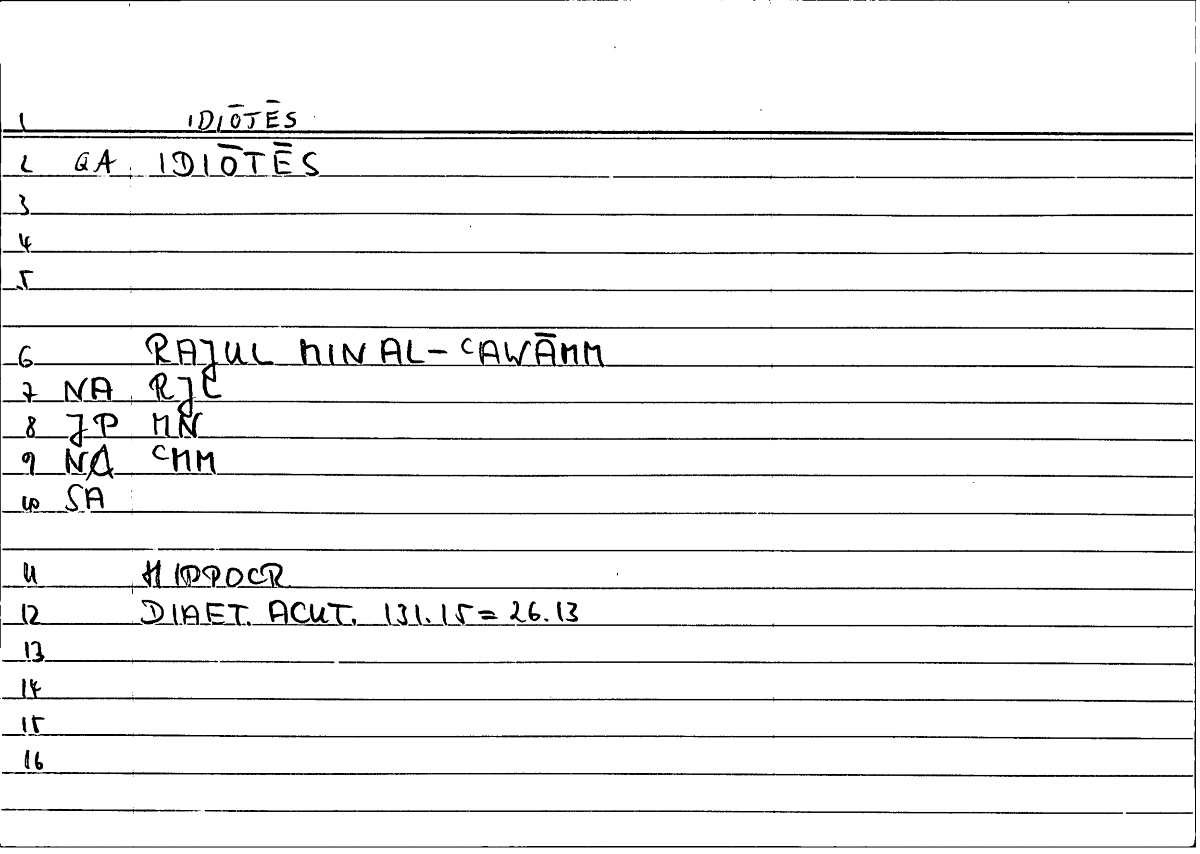 1 IDIŌTĒS
2 QA IDIŌTĒS
3
4
5
6 RAJUL MIN AL-ʿAWĀMM
7 NA RJL
8 JP MN
9 NA ʿMM
10 SA
11 HIPPOCR
12 DIAET. ACUT. 131.15 = 26.13
13
14
15
16